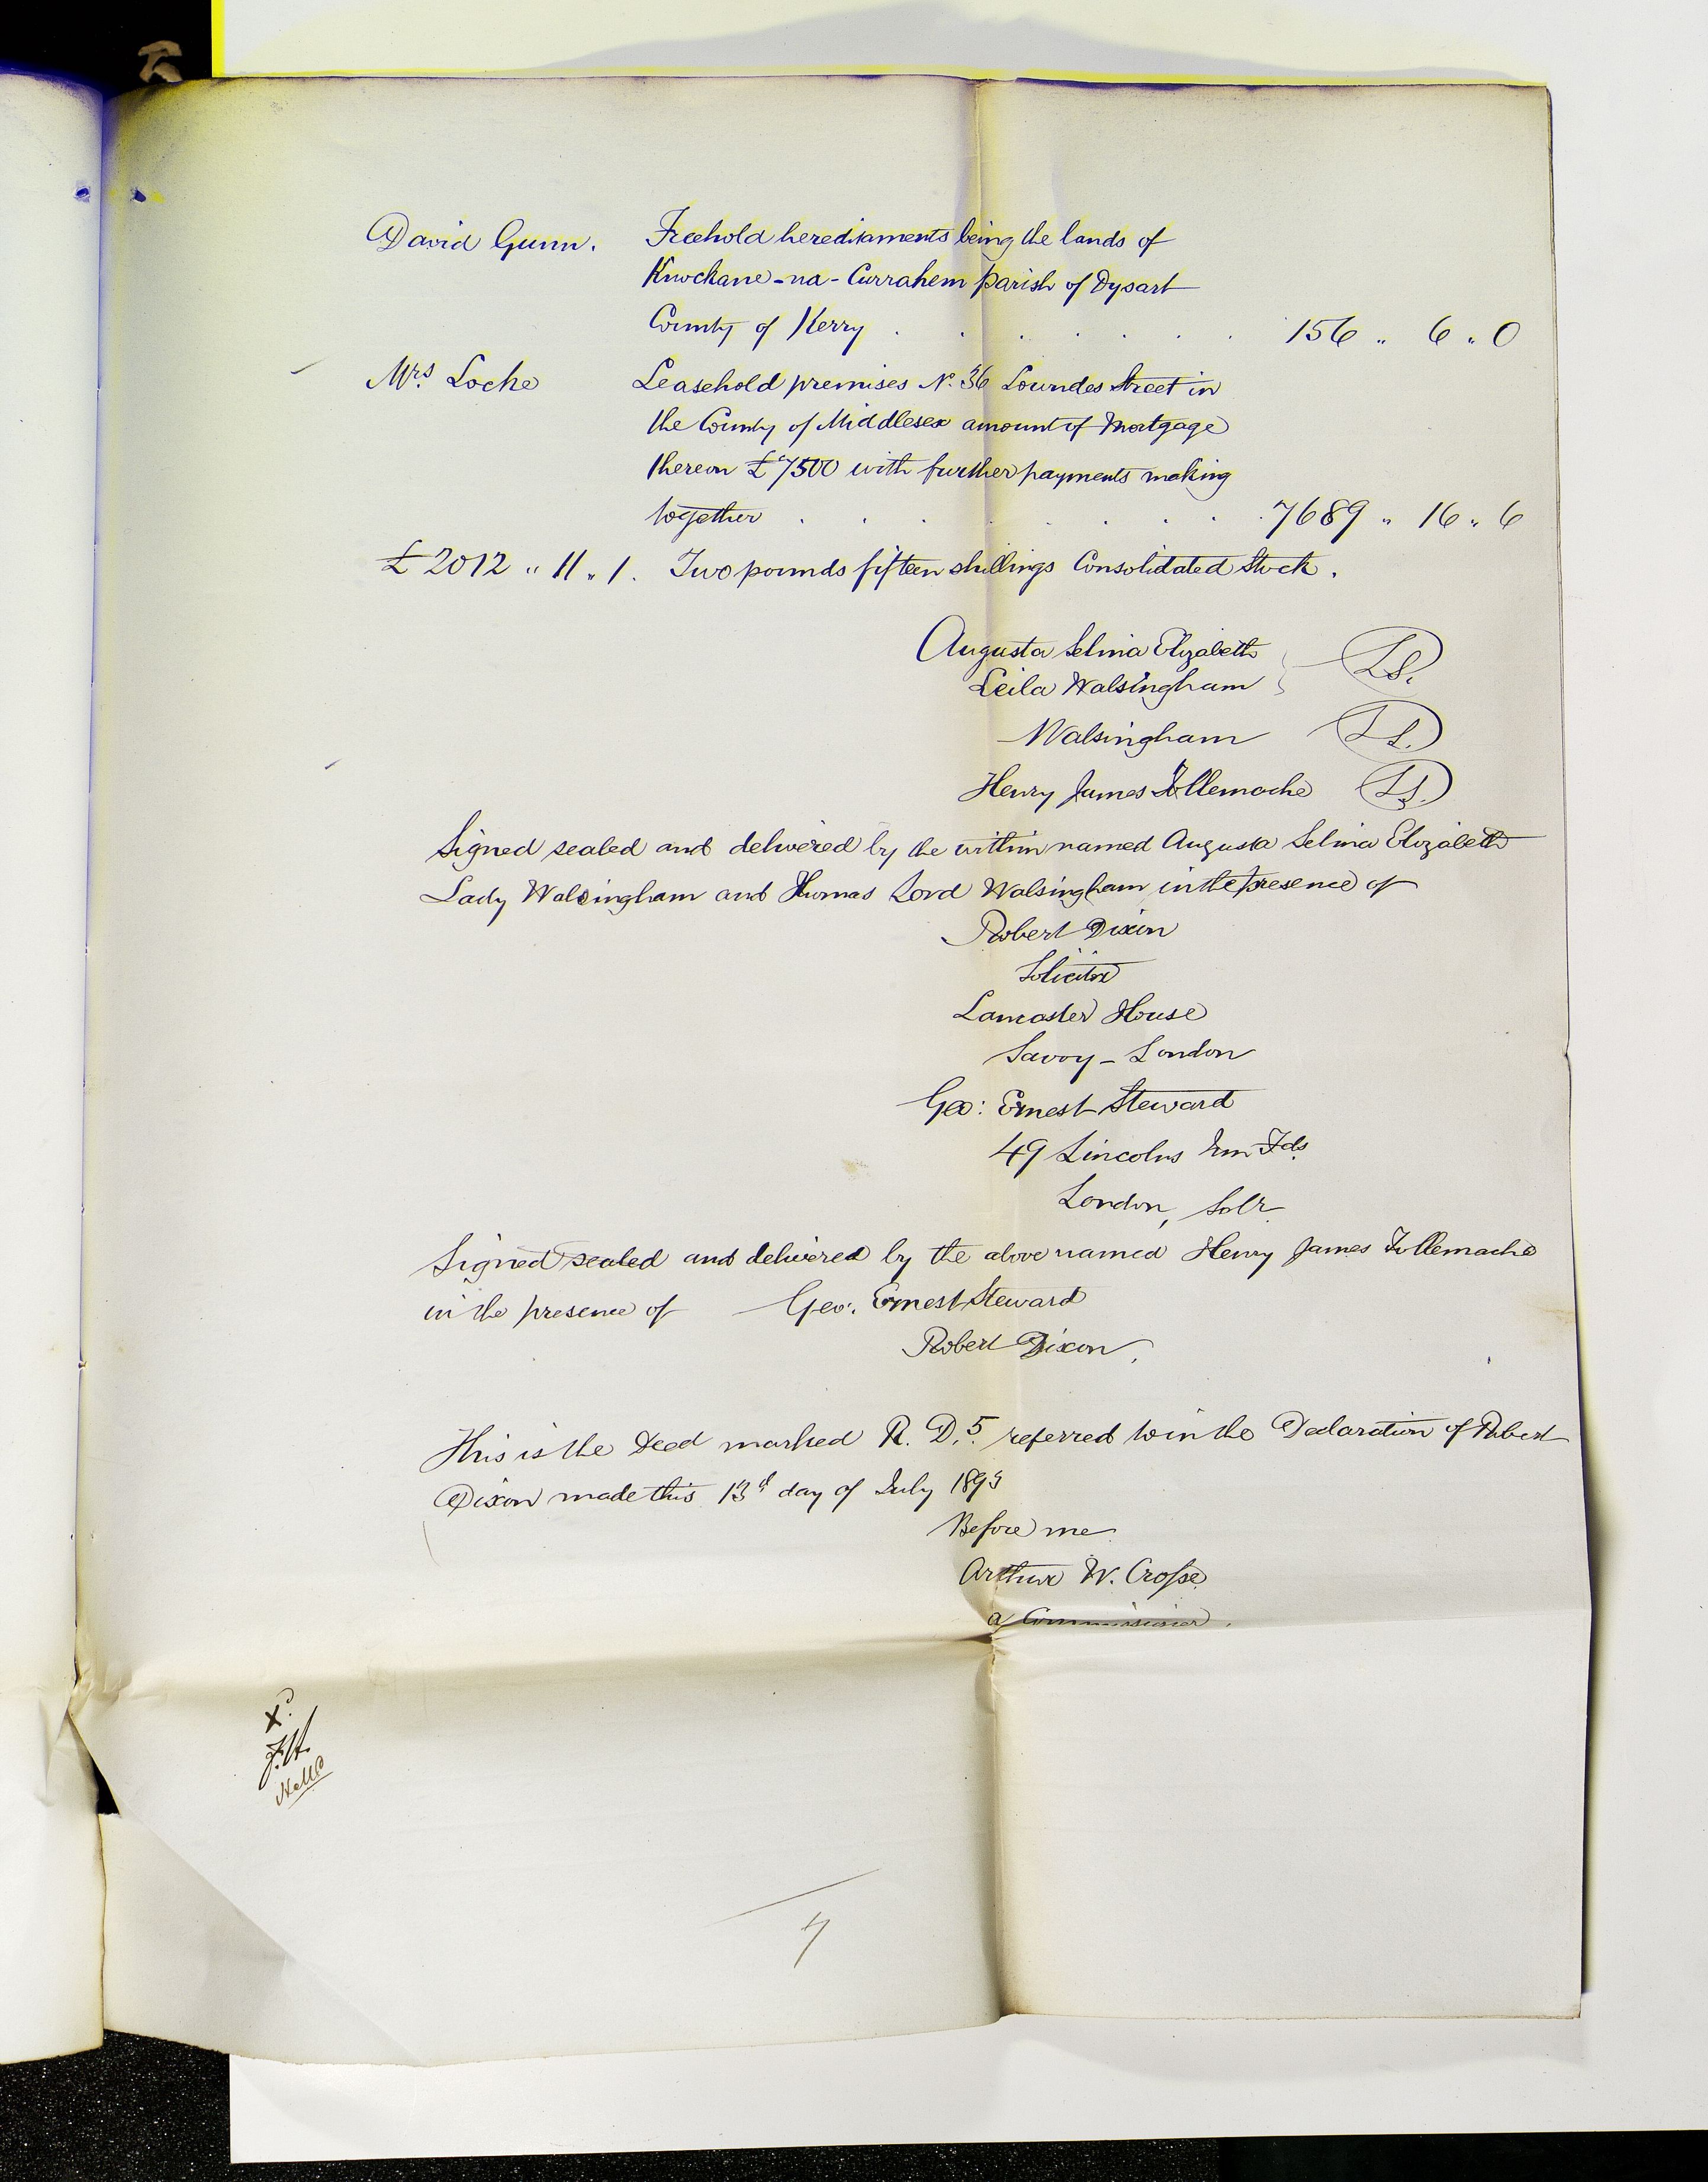 David Gunn. Freehold herediaments being the lands of
Knockane-na-Currahem parish of Dysart
County of Kerry . . . . . . . 156 " 6 " 0
Mrs. Locke Leasehold premises No. 36 Lowndes Street in
the County of Middlesex amount of Mortgage
thereon £7500 with further payments making
together . . . . . . . . 7689 " 16 " 6
£2012 " 11 " 1. Two pounds fifteen shillings Consolidated Stock.
Augusta Selina Elizabeth
Leila Walsingham } L.S.
Walsingham L.S.
Henry James Tollemache L.S.
Signed sealed and delivered by the within named Augusta Selina Elizabeth
Lady Walsingham and Thomas Lord Walsingham in the presence of
Robert Dixon
Solicitor
Lancaster House
Savoy - London
Geo: Ernest Steward
49 Lincolns Inn Fds.
London, Solr.
Signed sealed and delivered by the above named Henry James Tollemache
in the presence of Geo: Ernest Steward
Robert Dixon.
This is the Deed marked R. D. 5. referred to in the Declaration of Robert
Dixon made this 13th day of July 1893
Before me
Arthur W. Crosse
a Commissioner.
X.
J.H.